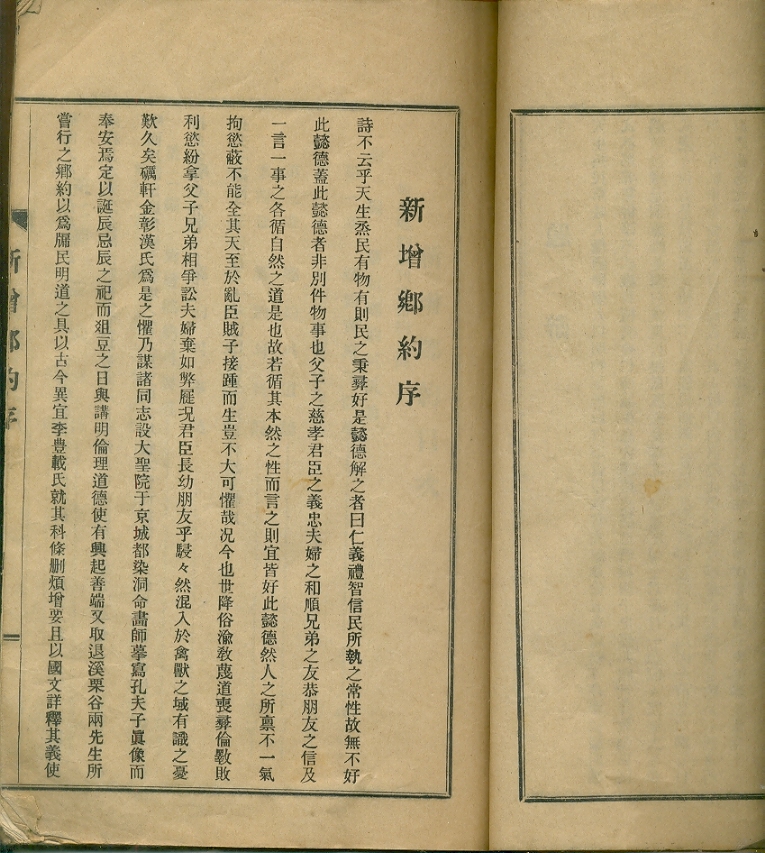 新增鄕約序
詩不云乎天生烝民有物有則民之秉彛好是懿德解之者曰仁義禮智信民所執之常性故無不好
此懿德蓋此懿德者非別件物事也父子之慈孝君臣之義忠夫婦之和順兄弟之友恭朋友之信及
一言一事之各循自然之道是也故若循其本然之性而言之則宜皆好此懿德然人之所禀不一氣
拘慾蔽不能全其天至於亂臣賊子接踵而生豈不大可懼哉况今也世降俗渝敎蔑道喪彛倫斁敗
利慾紛拿父子兄弟相爭訟夫婦棄如弊屣况君臣長幼朋友乎駸々然混入於禽獸之域有識之憂
歎久矣礪軒金彰漢氏爲是之懼乃謀諸同志設大聖院于京城都染洞命畵師摹寫孔夫子眞像而
奉安焉定以誕辰忌辰之祀而俎豆之日與講明倫理道德使有興起善端又取退溪栗谷兩先生所
嘗行之鄕約以爲牖民明道之具以古今異宜李豊載氏就其科條刪煩增要且以國文詳釋其義使
新增鄕約序